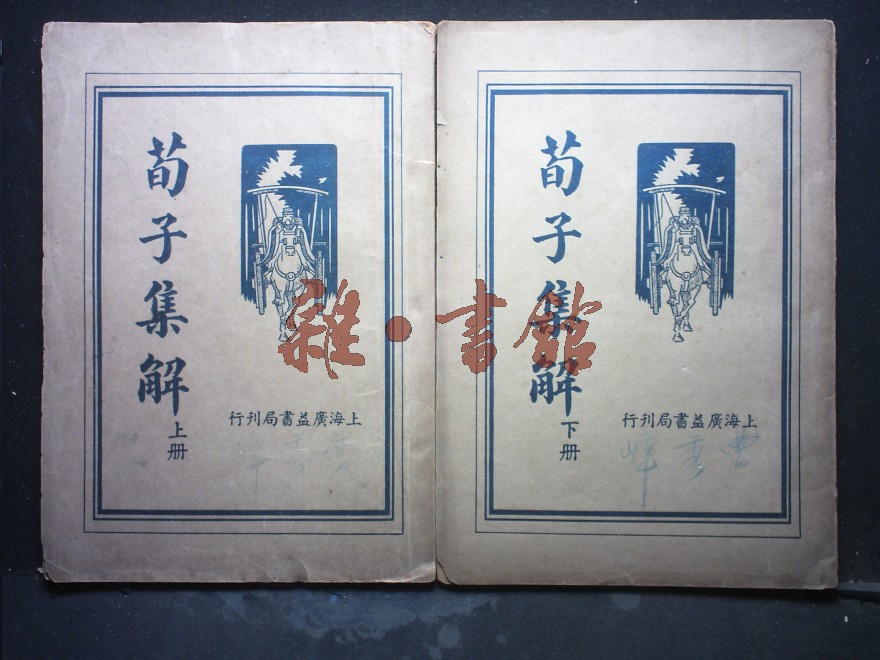 荀子集解
上册
上海廣益書局刊行
荀子集解
下册
上海廣益書局刊行
雜·書館